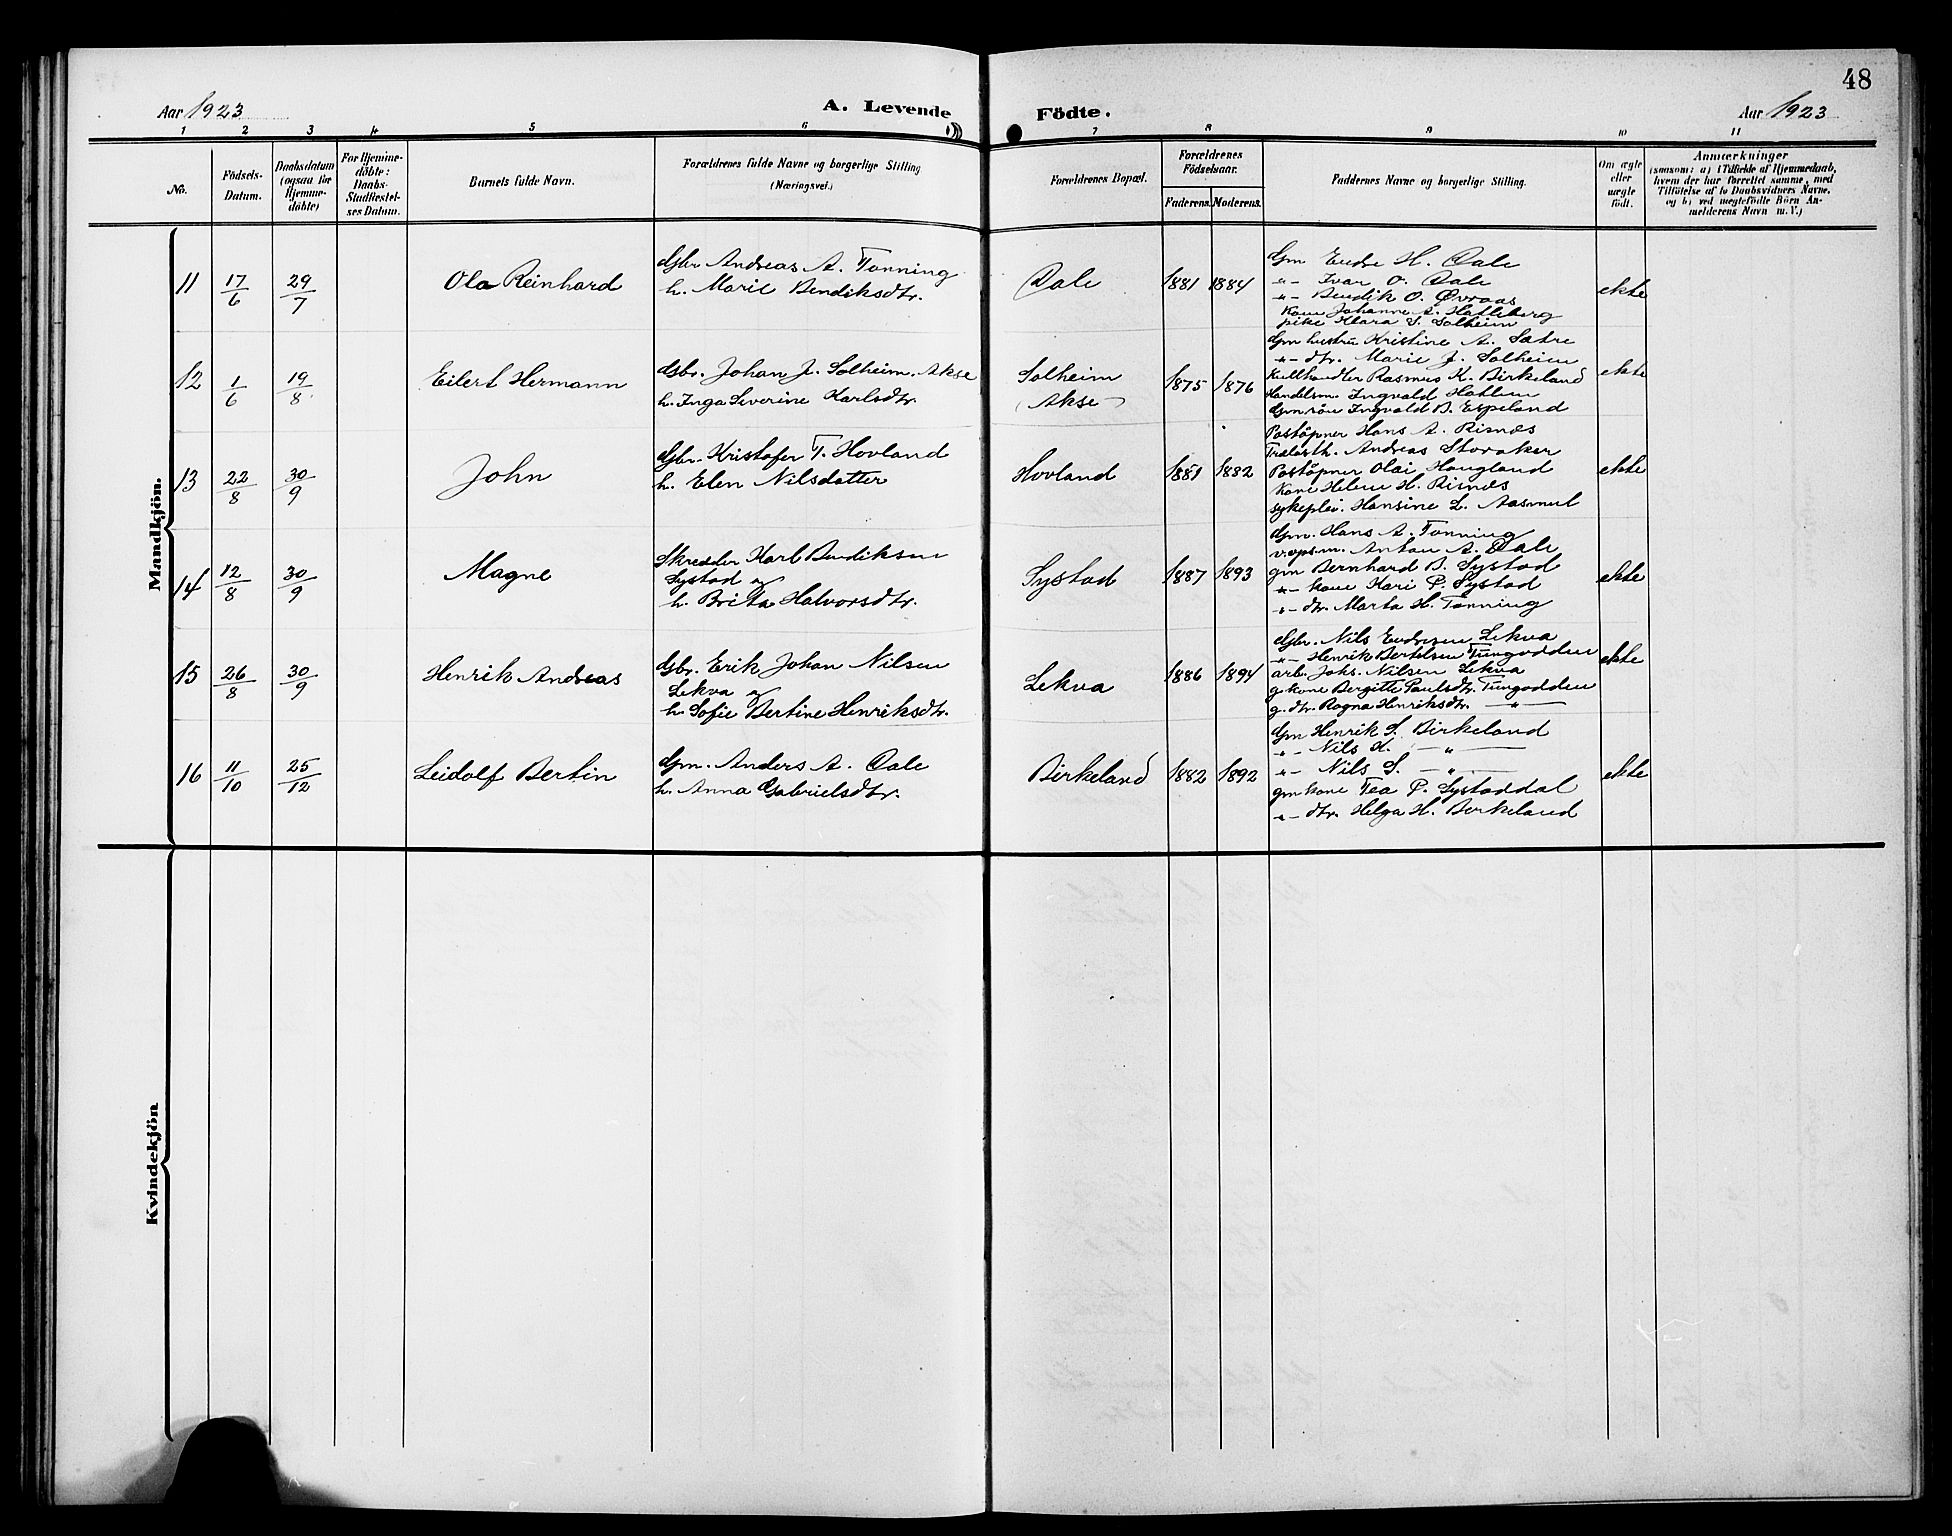 48
Aar 1923
A. Levende
Födte.
Aar 1923
1 2 3 4 5 6 7 8 9 10 11
No.
Födsels-
Datum.
Daabsdatum
(ogsaa for
Hjemme-
döbte)
For Hjemme-
döbte:
Daabs-
Stadfæstel-
ses Datum.
Barnets fulde Navn.
Forældrenes fulde Navne og borgerlige Stilling
(Næringsvei.)
Forældrenes Bopæl.
Forældrenes
Födselsaar.
Faderens.
Moderens.
Faddernes Navne og borgerlige Stilling.
Om ægte
eller
uægte
födt.
Anmærkninger
(saasom: a) i Tilfælde af Hjemmedaab,
hvem der har forrettet samme, med
Tilföielse af to Daabsvidners Navne,
og b) ved uægtefödte Börn An-
melderens Navn m.V.)
Mandkjön.
11
17/6
29/7
Ola Reinhard
Gbr. Andreas A. Tonning
h. Marie Bendiksdtr.
Dale
1881
1884
Gm Endre H. Dale
-"- Ivar O. Dale
-"- Bendik O. Øvraas
Kone Johanne A. Hatleberg
pike Klara S. Solheim
ekte
12
1/6
19/8
Eilert Hermann
Gbr. Johan J. Solheim, Akse
h. Inga Severine Karlsdtr.
Solheim
(Akse)
1875
1876
Gm hustru Kristine A. Sætre
-"- dtr. Marie J. Solheim
Kullhandler Rasmus K. Birkeland
Handelsm. Ingvald Hatlem
Gm søn Ingvald B. Espeland
ekte
13
22/8
30/9
John
Gbr. Kristofer T. Hovland
h. Elen Nilsdatter
Hovland
1881
1882
Postöpner Hans A. Risnes
Trælasth. Andreas Storaker
Postöpner Olai Haugland
Kone Helene H. Risnes
sykeplei. Hansine L. Aasmul
ekte
14
12/8
30/9
Magne
Skredder Karl Bendiksen
Systad og
h. Brita Halvorsdtr.
Systad
1887
1893
Gm. Hans A. Tonning
Anton A. Dale
gm Bernhard B. Systad
-"- kone Kari P. Systad
-"- dtr. Marta H. Tonning
ekte
15
26/8
30/9
Henrik Andreas
Gbr. Erik Johan Nilsen
Lekva og
h. Sofie Bertine Henriksdtr.
Lekva
1886
1894
Gbr. Nils Endresen Lekva
-"- Henrik Bertelsen Tungodden
arb. Johs. Nilsen Lekva
g. kone Bergitte Paulsdtr. Tungodden
g. dtr. Ragna Henriksdtr. -"-
ekte
16
11/10
25/12
Leidolf Bertin
Gm. Anders A. Dale
h. Anna Gabrielsdtr.
Birkeland
1882
1892
Gm Henrik S. Birkeland
-"- Nils H. -"-
-"- Nils S. -"-
gm kone Tea P. Systaddal
-"- dtr. Helga H. Birkeland
ekte
Kvindekjön